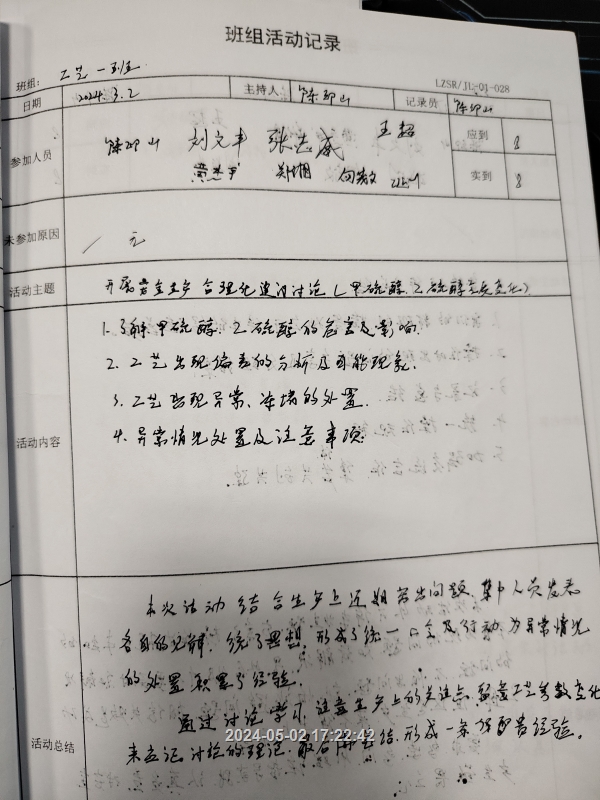 班组活动记录
班组: 工艺一班
LZSR/JL-01-028
日期 2024.3.2 主持人 陈邵山 记录员 陈邵山
参加人员 陈邵山 刘文丰 张志威 王超 应到 8
郑湘 向敏 实到 8
未参加原因 / 无
活动主题 开展安全生产合理化建议讨论(甲硫醇、乙硫醇变化)
活动内容
1. 了解甲硫醇、乙硫醇的危害及影响.
2. 工艺出现偏差的分析及可能现象.
3. 工艺出现异常、冻堵的处置.
4. 异常情况处置及注意事项.
活动总结
本次活动结合生产上近期突出问题,集中人员发表
各自的见解,统一了思想,形成了统一口令及行动,为异常情况
的处置积累了经验.
通过讨论学习,注意生产上的关注点,留意工艺参数变化
来 讨论的理论,最后 总结,形成一条 经验.
2024-05-02 17:22:42